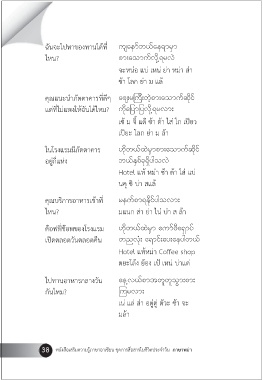 ฉันจะไปหาของทานได้ที่
ไหน?
ကျနော်ဘယ်နေရာမှာ
စားသောက်လို့ရမလဲ
จะหน่อ แบ่ เหน่ ย่า หม่า ส่า
ซ้า โลก ย่า ม แล้
คุณแนะนำภัตตาคารที่ดีๆ
แต่ที่ไม่แพงให้ฉันได้ไหม?
ကိုပြောပြလို့ရမလား
เปียะ โลก ย่า ม ล้า
ในโรงแรมมีภัตตาคาร
อยู่กี่แห่ง
ဟိုတယ်ထဲမှာစားသောက်ဆိုင်
ဘယ်နှစ်ခုရှိပါသလဲ
Hotel แท้ หม่า ซ้า ต้า ไส่ แบ่
นคุ ชิ บ่า สแล้
คุณบริการอาหารเช้าที่
ไหน?
မနက်စာရနိုင်ပါသလား
มแนก ส่า ย่า ไน่ บ่า ส ล้า
คือฟฟี่ช็อพของโรงแรม
เปิดตลอดวันตลอดคืน
ဟိုတယ်ထဲမှာ ကော်ဖီရောင်
တညလုံး ရောင်းပေးနေပါတယ်
Hotel แท้หม่า Coffee shop
ตยะโล้ง ย้อง เป้ เหน่ บ่าแด่
ไปทานอาหารกลางวัน
กันไหม?
နေ့လယ်စာအတူတူသွားစား
ကြမလား
เน่ แล่ ส่า อตูตู่ ต้วะ ซ้า จะ
มล้า
38 หนังสือเสริมความรู้ภาษาอาเซียน ชุดการสื่อสารในชีวิตประจำวัน ภาษาพม่า